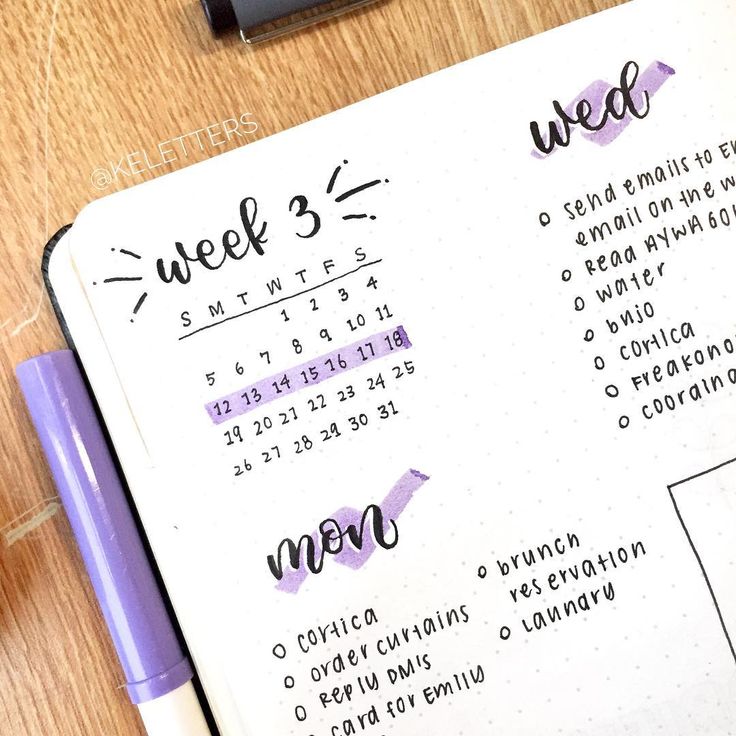 @KELETTERS
week 3
S M T W T F S
1 2 3 4
5 6 7 8 9 10 11
12 13 14 15 16 17 18
19 20 21 22 23 24 25
26 27 28 29 30 31
mon
cortica
order curtains
Reply DM's
card for Emily
brunch
reservation
laundry
wed
send emails to
email on the
Read AYWA
water
bnjo
cortica
Freakono
coordina